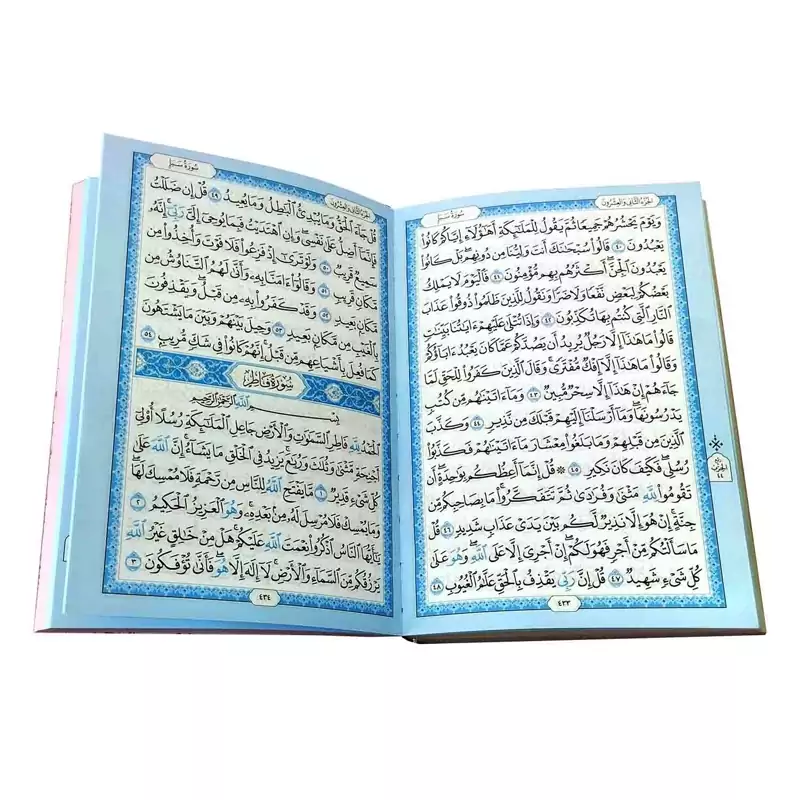 الجزء الثاني والعشرون
سورة سبإ
وَيَوْمَ يَحْشُرُهُمْ جَمِيعًا ثُمَّ يَقُولُ لِلْمَلَٰٓئِكَةِ أَهَٰٓؤُلَآءِ إِيَّاكُمْ كَانُوا۟
يَعْبُدُونَ ٤٠ قَالُوا۟ سُبْحَٰنَكَ أَنتَ وَلِيُّنَا مِن دُونِهِم ۖ بَلْ كَانُوا۟
يَعْبُدُونَ ٱلْجِنَّ ۖ أَكْثَرُهُم بِهِم مُّؤْمِنُونَ ٤١ فَٱلْيَوْمَ لَا يَمْلِكُ
بَعْضُكُمْ لِبَعْضٍ نَّفْعًا وَلَا ضَرًّا وَنَقُولُ لِلَّذِينَ ظَلَمُوا۟ ذُوقُوا۟ عَذَابَ
ٱلنَّارِ ٱلَّتِى كُنتُم بِهَا تُكَذِّبُونَ ٤٢ وَإِذَا تُتْلَىٰ عَلَيْهِمْ ءَايَٰتُنَا بَيِّنَٰتٍ
قَالُوا۟ مَا هَٰذَآ إِلَّا رَجُلٌ يُرِيدُ أَن يَصُدَّكُمْ عَمَّا كَانَ يَعْبُدُ ءَابَآؤُكُمْ
وَقَالُوا۟ مَا هَٰذَآ إِلَّآ إِفْكٌ مُّفْتَرًى ۚ وَقَالَ ٱلَّذِينَ كَفَرُوا۟ لِلْحَقِّ لَمَّا
جَآءَهُمْ إِنْ هَٰذَآ إِلَّا سِحْرٌ مُّبِينٌ ٤٣ وَمَآ ءَاتَيْنَٰهُم مِّن كُتُبٍ
يَدْرُسُونَهَا ۖ وَمَآ أَرْسَلْنَآ إِلَيْهِمْ قَبْلَكَ مِن نَّذِيرٍ ٤٤ وَكَذَّبَ
ٱلَّذِينَ مِن قَبْلِهِمْ وَمَا بَلَغُوا۟ مِعْشَارَ مَآ ءَاتَيْنَٰهُمْ فَكَذَّبُوا۟
رُسُلِى ۖ فَكَيْفَ كَانَ نَكِيرِ ٤٥ ۞ قُلْ إِنَّمَآ أَعِظُكُم بِوَٰحِدَةٍ ۖ أَن
تَقُومُوا۟ لِلَّهِ مَثْنَىٰ وَفُرَٰدَىٰ ثُمَّ تَتَفَكَّرُوا۟ ۚ مَا بِصَاحِبِكُم مِّن
جِنَّةٍ ۚ إِنْ هُوَ إِلَّا نَذِيرٌ لَّكُم بَيْنَ يَدَىْ عَذَابٍ شَدِيدٍ ٤٦ قُلْ
مَا سَأَلْتُكُم مِّنْ أَجْرٍ فَهُوَ لَكُمْ ۖ إِنْ أَجْرِىَ إِلَّا عَلَى ٱللَّهِ ۖ وَهُوَ عَلَىٰ
كُلِّ شَىْءٍ شَهِيدٌ ٤٧ قُلْ إِنَّ رَبِّى يَقْذِفُ بِٱلْحَقِّ عَلَّٰمُ ٱلْغُيُوبِ ٤٨
٤٣٣
ربع
الحزب
٤٤
سورة سبإ
قُلْ جَآءَ ٱلْحَقُّ وَمَا يُبْدِئُ ٱلْبَٰطِلُ وَمَا يُعِيدُ ٤٩ قُلْ إِن ضَلَلْتُ
فَإِنَّمَآ أَضِلُّ عَلَىٰ نَفْسِى ۖ وَإِنِ ٱهْتَدَيْتُ فَبِمَا يُوحِىٓ إِلَىَّ رَبِّىٓ ۚ إِنَّهُۥ
سَمِيعٌ قَرِيبٌ ٥٠ وَلَوْ تَرَىٰٓ إِذْ فَزِعُوا۟ فَلَا فَوْتَ وَأُخِذُوا۟ مِن
مَّكَانٍ قَرِيبٍ ٥١ وَقَالُوٓا۟ ءَامَنَّا بِهِۦ وَأَنَّىٰ لَهُمُ ٱلتَّنَاوُشُ مِن
مَّكَانٍۭ بَعِيدٍ ٥٢ وَقَدْ كَفَرُوا۟ بِهِۦ مِن قَبْلُ ۖ وَيَقْذِفُونَ
بِٱلْغَيْبِ مِن مَّكَانٍۭ بَعِيدٍ ٥٣ وَحِيلَ بَيْنَهُمْ وَبَيْنَ مَا يَشْتَهُونَ
كَمَا فُعِلَ بِأَشْيَاعِهِم مِّن قَبْلُ ۚ إِنَّهُمْ كَانُوا۟ فِى شَكٍّ مُّرِيبٍۭ ٥٤
سورة فاطر
بِسْمِ ٱللَّهِ ٱلرَّحْمَٰنِ ٱلرَّحِيمِ
ٱلْحَمْدُ لِلَّهِ فَاطِرِ ٱلسَّمَٰوَٰتِ وَٱلْأَرْضِ جَاعِلِ ٱلْمَلَٰٓئِكَةِ رُسُلًا أُو۟لِىٓ
أَجْنِحَةٍ مَّثْنَىٰ وَثُلَٰثَ وَرُبَٰعَ ۚ يَزِيدُ فِى ٱلْخَلْقِ مَا يَشَآءُ ۚ إِنَّ ٱللَّهَ عَلَىٰ
كُلِّ شَىْءٍ قَدِيرٌ ١ مَّا يَفْتَحِ ٱللَّهُ لِلنَّاسِ مِن رَّحْمَةٍ فَلَا مُمْسِكَ لَهَا ۖ
وَمَا يُمْسِكْ فَلَا مُرْسِلَ لَهُۥ مِنۢ بَعْدِهِۦ ۚ وَهُوَ ٱلْعَزِيزُ ٱلْحَكِيمُ ٢
يَٰٓأَيُّهَا ٱلنَّاسُ ٱذْكُرُوا۟ نِعْمَتَ ٱللَّهِ عَلَيْكُمْ ۚ هَلْ مِنْ خَٰلِقٍ غَيْرُ ٱللَّهِ
يَرْزُقُكُم مِّنَ ٱلسَّمَآءِ وَٱلْأَرْضِ ۚ لَآ إِلَٰهَ إِلَّا هُوَ ۖ فَأَنَّىٰ تُؤْفَكُونَ ٣
٤٣٤